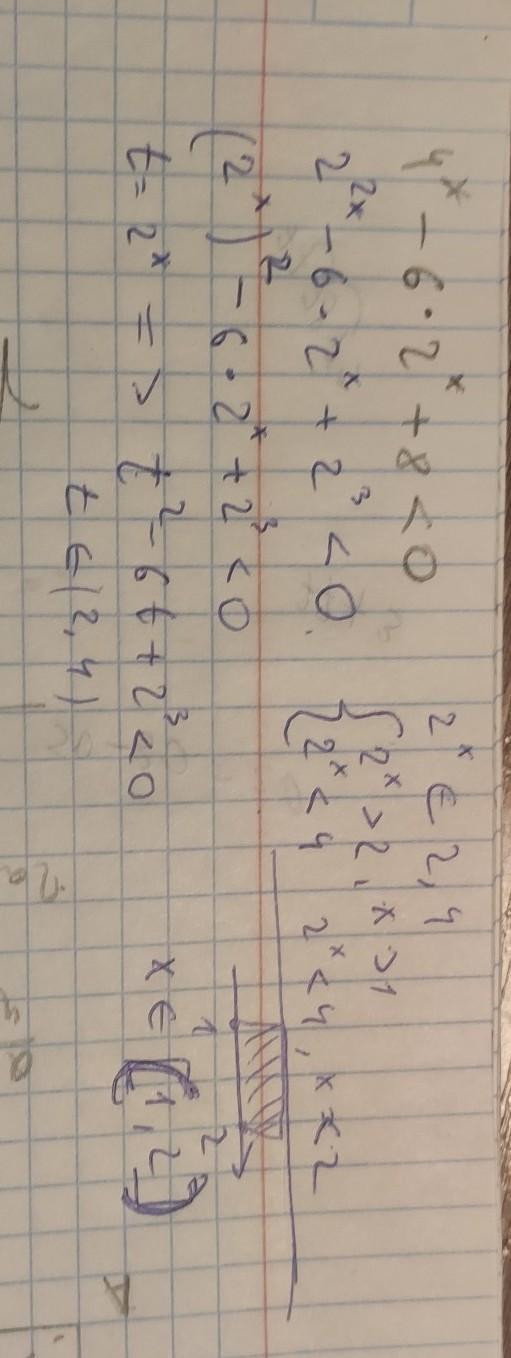 4ˣ - 6 · 2ˣ + 8 < 0
2²ˣ - 6 · 2ˣ + 2³ < 0
(2ˣ)² - 6 · 2ˣ + 2³ < 0
t = 2ˣ => t² - 6t + 2³ < 0
t ∈ (2, 4)
2ˣ ∈ 2, 4
{ 2ˣ > 2, x > 1
2ˣ < 4 2ˣ < 4, x < 2
1 2
x ∈ (1, 2)